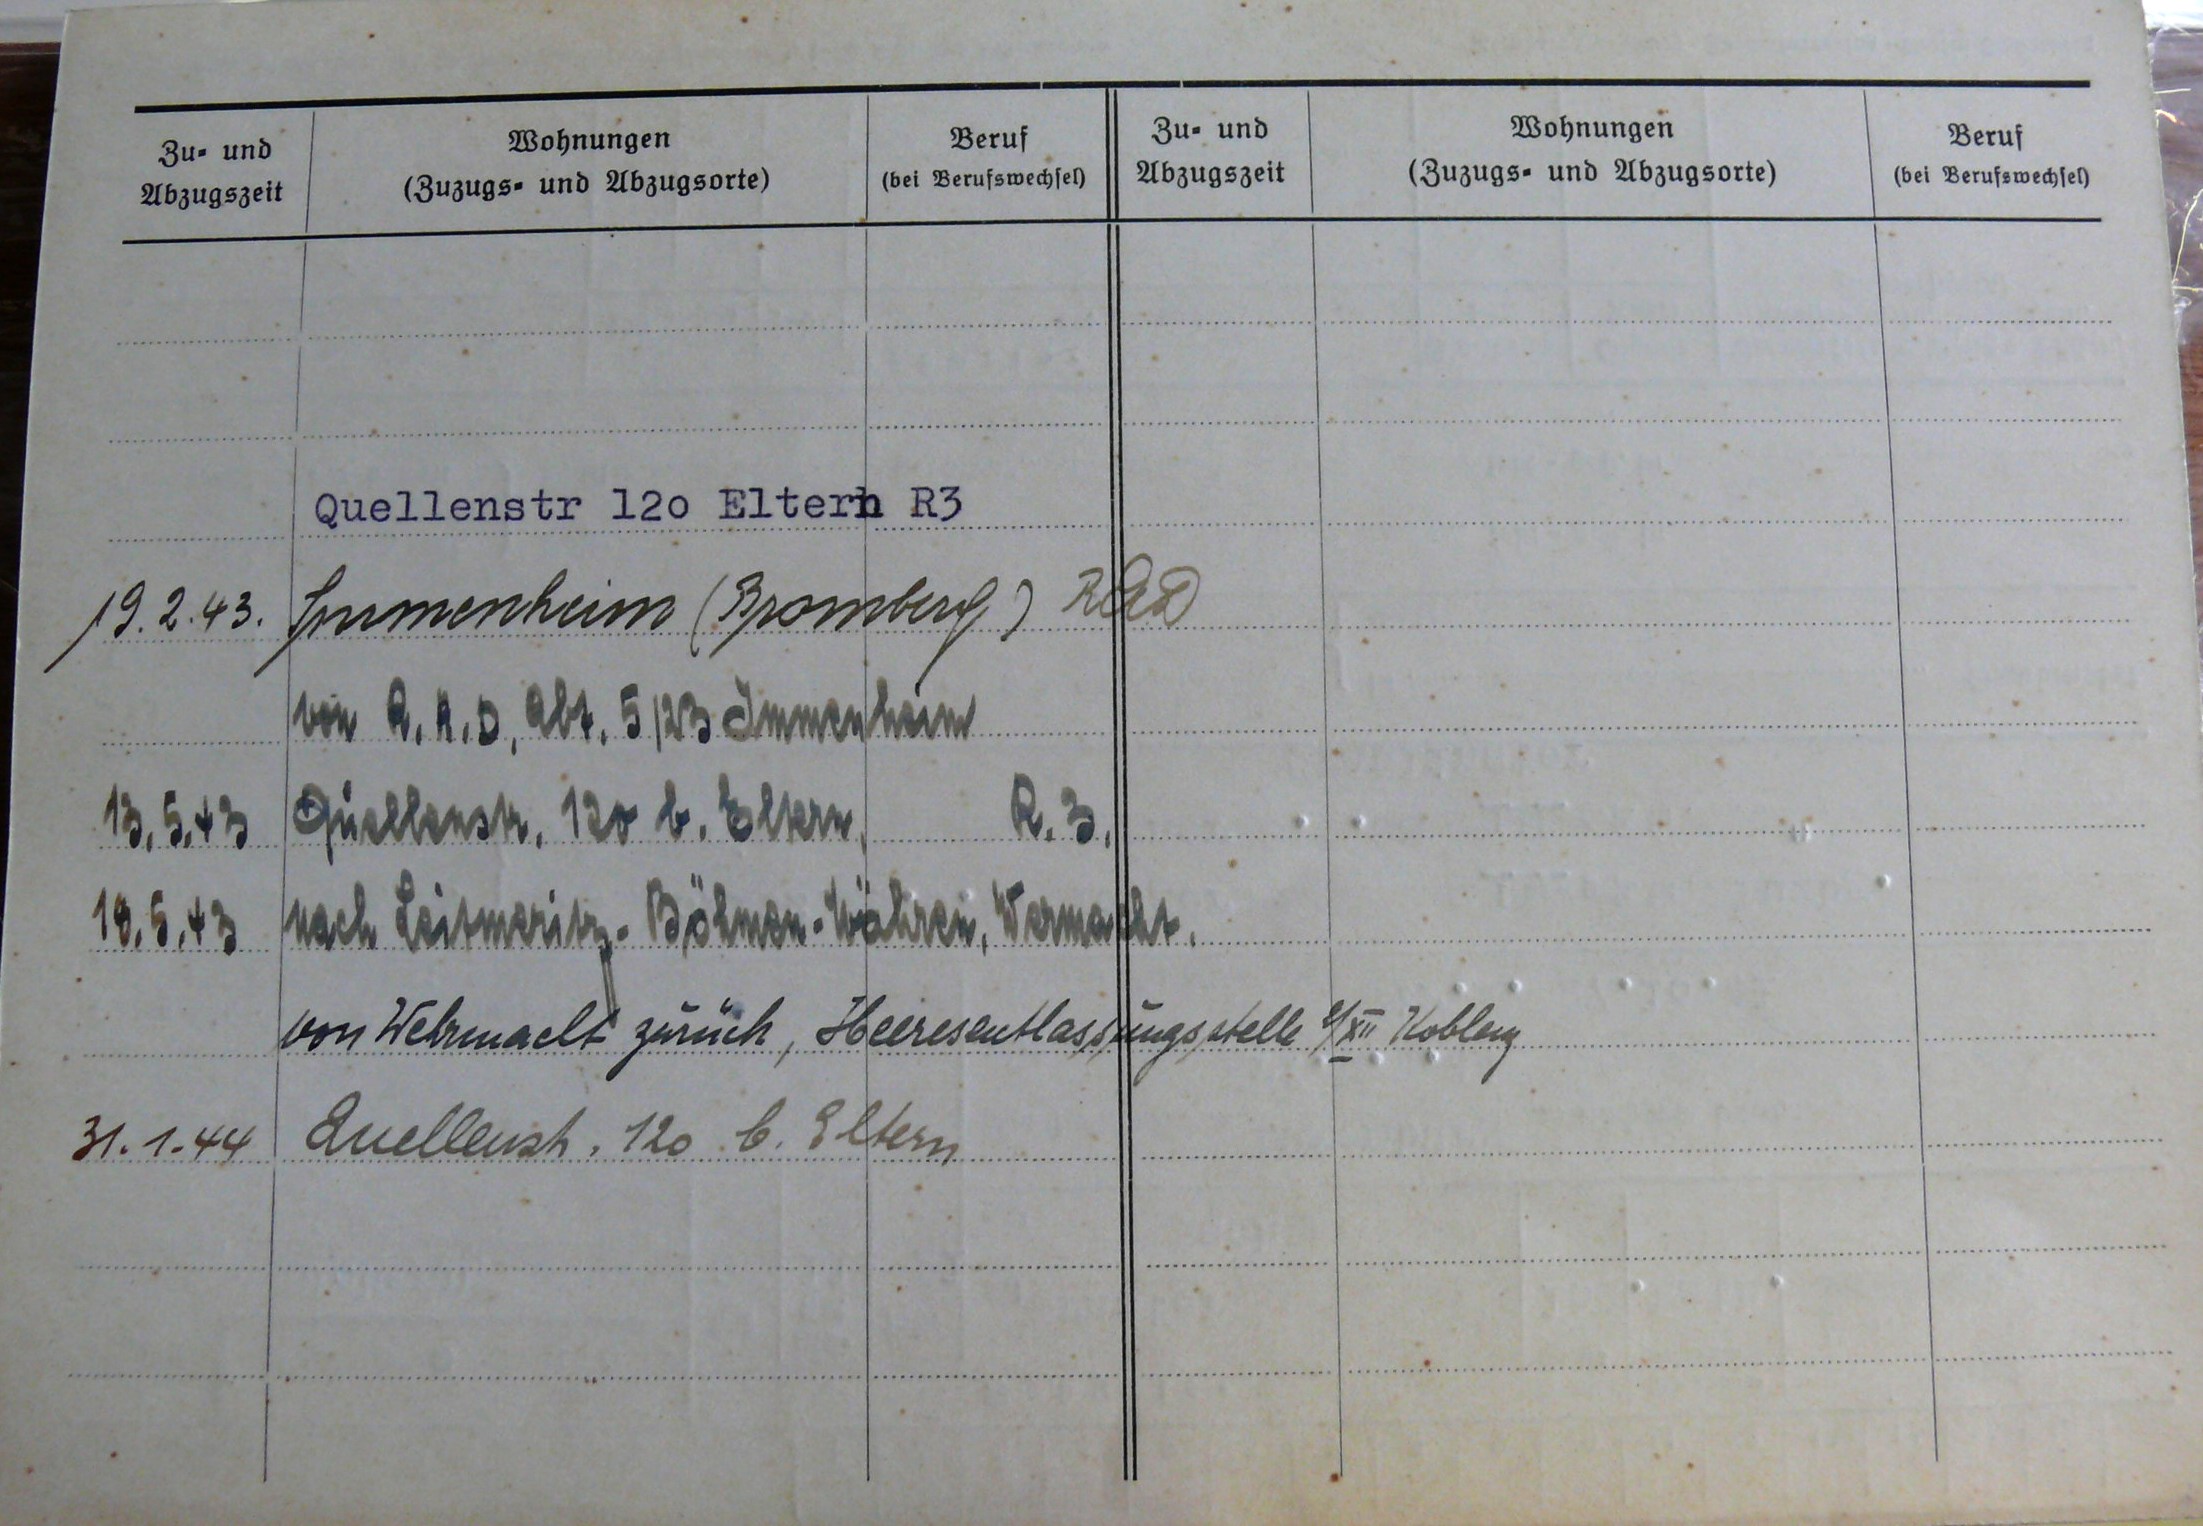 Zu- und Abzugszeit
Wohnungen
(Zuzugs- und Abzugsorte)
Beruf
(bei Berufswechsel)
Zu- und Abzugszeit
Wohnungen
(Zuzugs- und Abzugsorte)
Beruf
(bei Berufswechsel)
Quellenstr 12o Eltern R3
19.2.43. Immenheim (Bromberg) RAD
von R.A.D, Abt. 5/23 Immenheim
13.5.43 Quellenstr. 120 b. Eltern, R.3.
18.5.43 nach Leitmeritz - Böhmen-Mähren, Wermacht.
von Wehrmacht zurück, Heeresentlassungsstelle XII Koblenz
31.1.44 Quellenstr. 120 b. Eltern